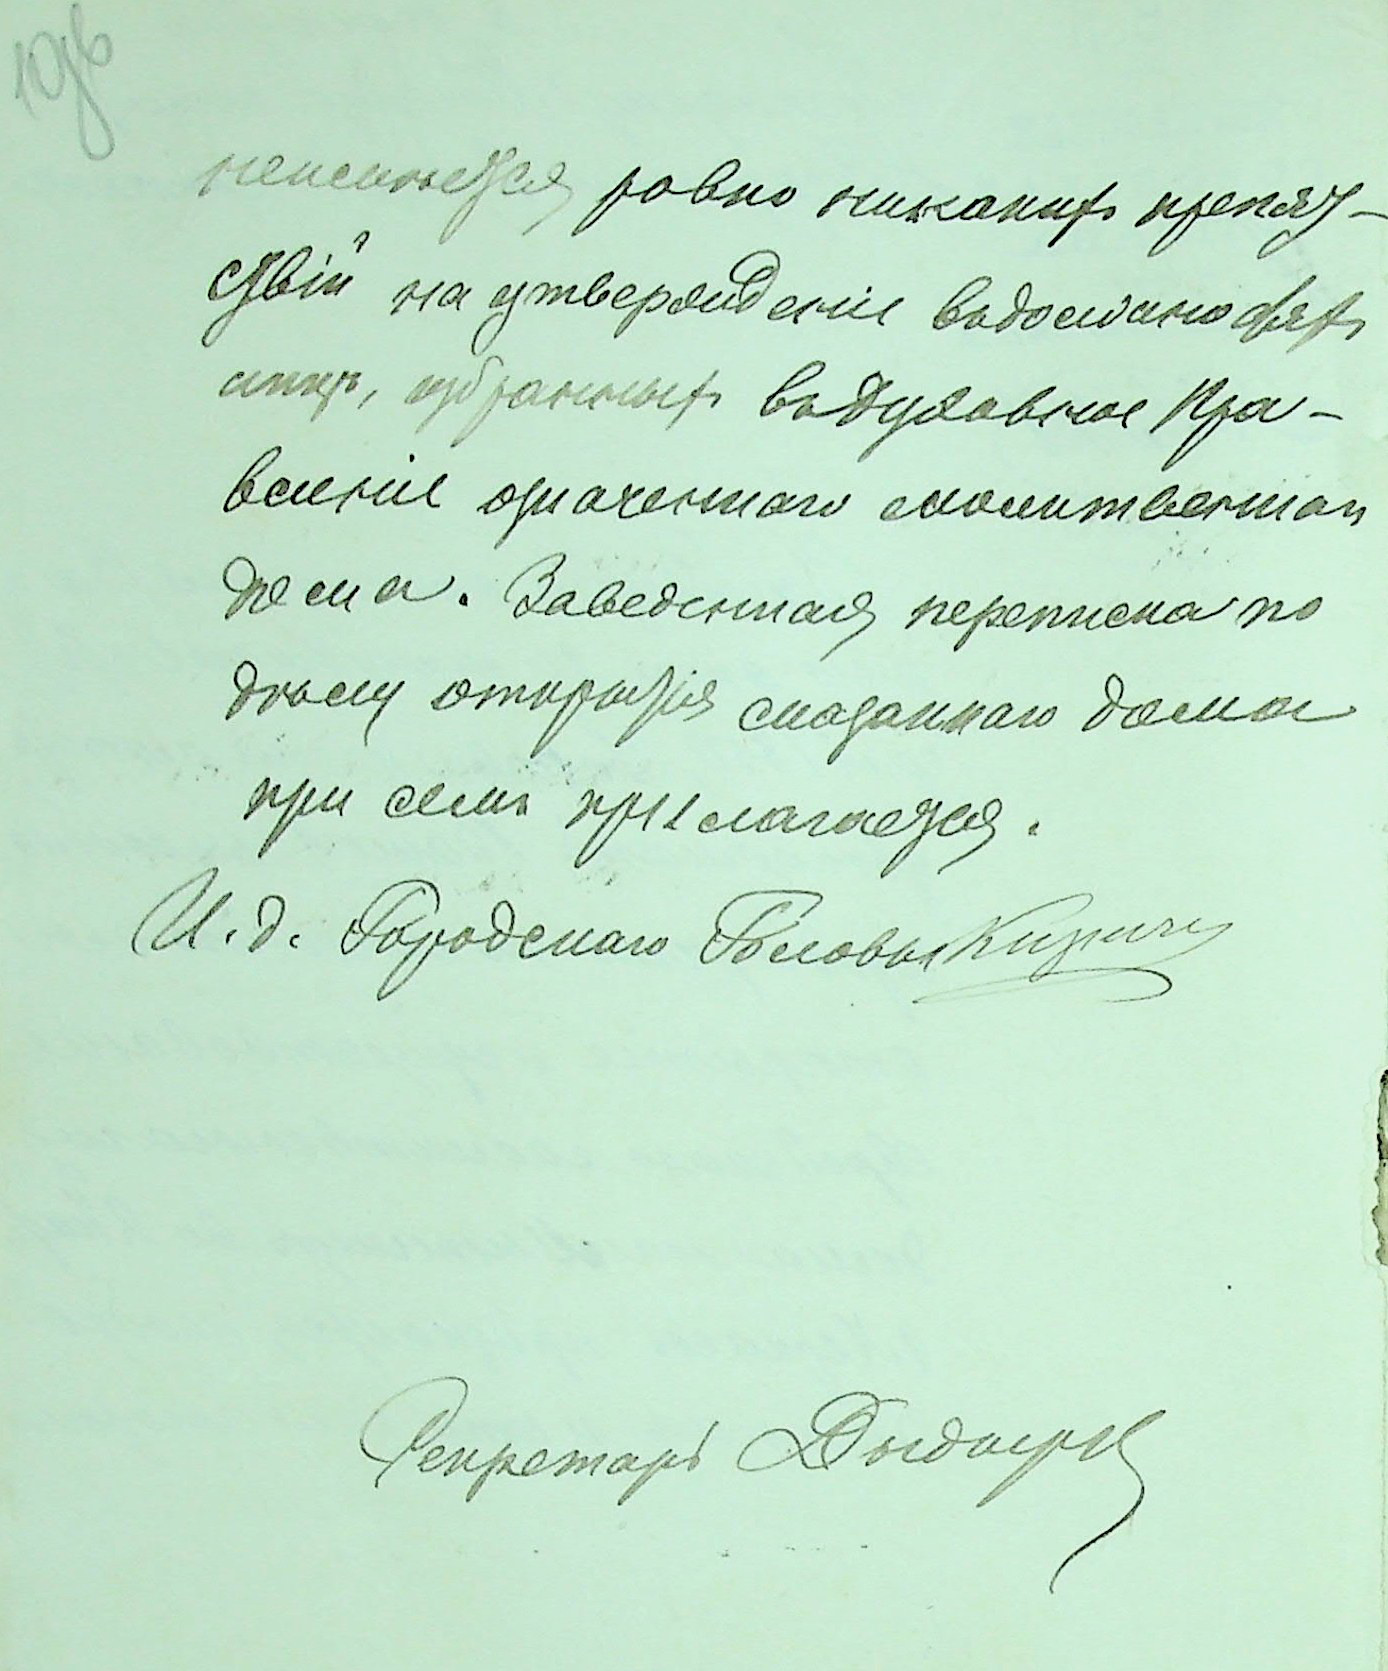 неимѣется равно никакихъ препят-
ствій на утвержденіе въ должностяхъ
лицъ, избранныхъ въ Духовное Пра-
вленіе означеннаго молитвеннаго
дома. Заведенная переписка по
дѣлу открытія сказаннаго дома
при семъ прилагается.
И. д. Городскаго Головы
Секретарь